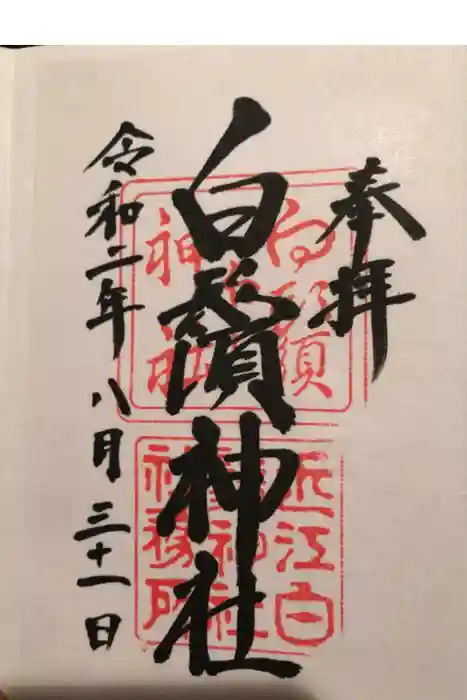 奉拝
白鬚神社
令和二年八月三十一日
白鬚
神社
近江白
鬚神社
社務所